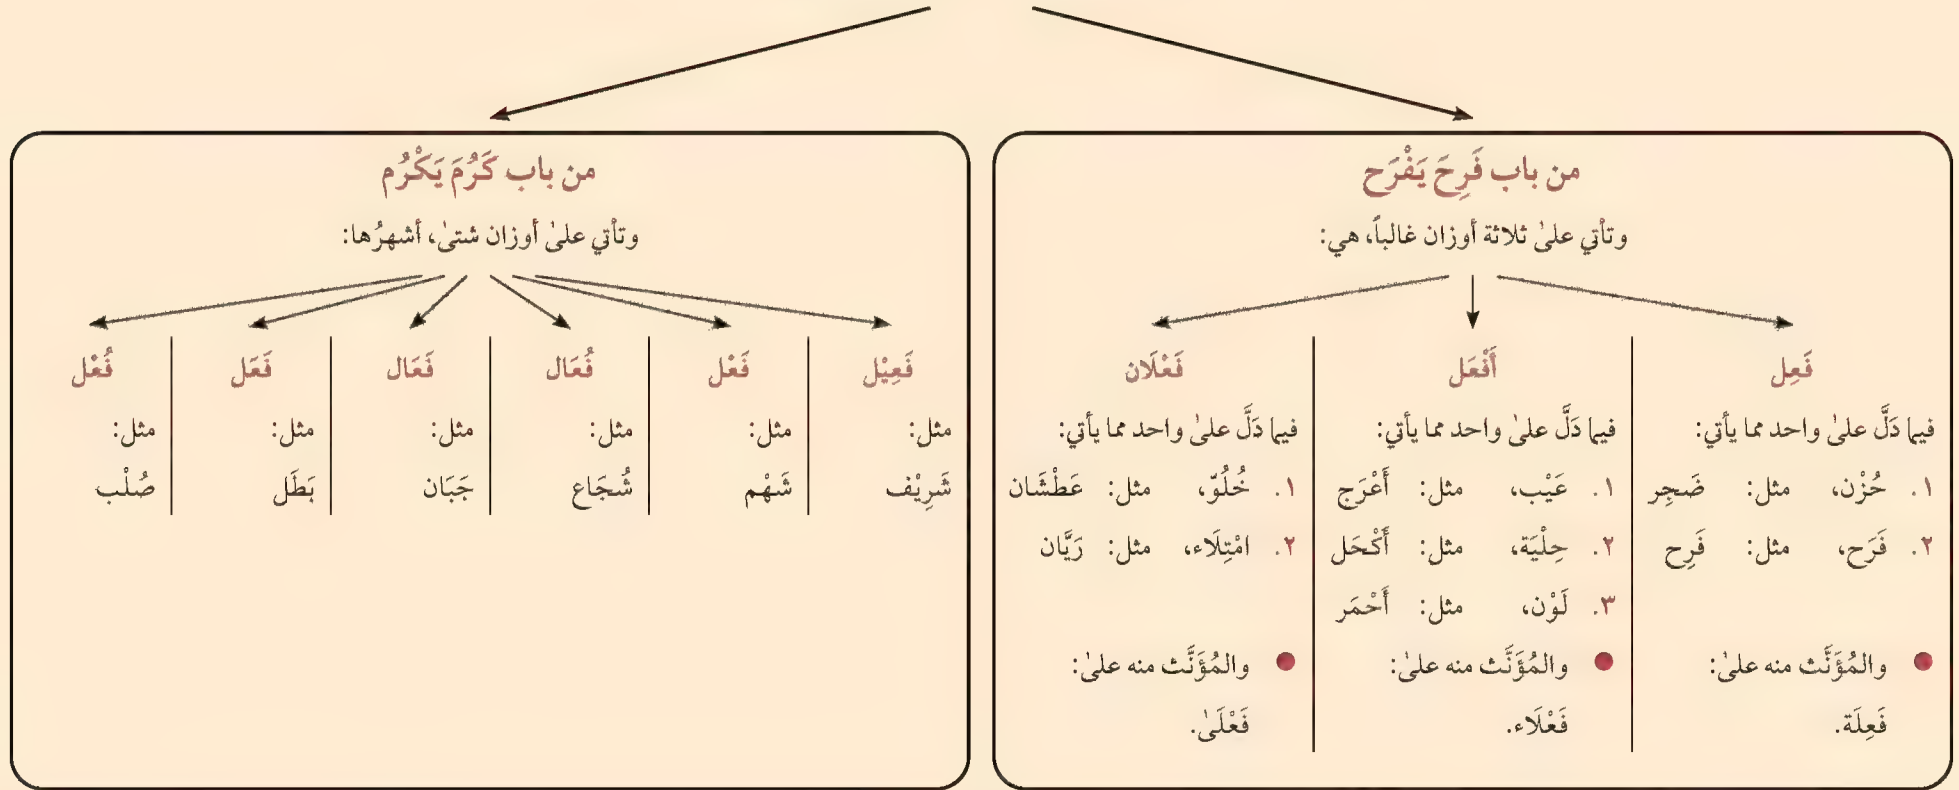 من باب فَرِحَ يَفْرَح
وتأتي علىٰ ثلاثة أوزان غالباً، هي:
فَعِل
فيما دَلَّ علىٰ واحد مما يأتي:
١. حُزْن، مثل: ضَجِر
٢. فَرَح، مثل: فَرِح
والمُؤَنَّث منه علىٰ:
فَعِلَة.
أَفْعَل
فيما دَلَّ علىٰ واحد مما يأتي:
١. عَيْب، مثل: أَعْرَج
٢. حِلْيَة، مثل: أَكْحَل
٣. لَوْن، مثل: أَحْمَر
والمُؤَنَّث منه علىٰ:
فَعْلَاء.
فَعْلَان
فيما دَلَّ علىٰ واحد مما يأتي:
١. خُلُوّ، مثل: عَطْشَان
٢. امْتِلَاء، مثل: رَيَّان
والمُؤَنَّث منه علىٰ:
فَعْلَىٰ.
من باب كَرُمَ يَكْرُم
وتأتي علىٰ أوزان شتىٰ، أشهرُها:
فَعِيْل
مثل:
شَرِيْف
فَعْل
مثل:
شَهْم
فُعَال
مثل:
شُجَاع
فَعَال
مثل:
جَبَان
فَعَل
مثل:
بَطَل
فُعْل
مثل:
صُلْب